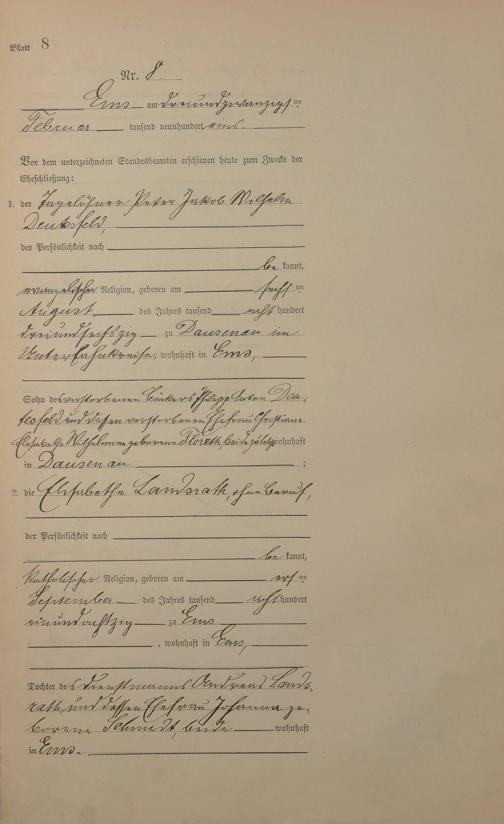 Blatt 8
Nr. 8.
Ems am dreiundzwanzigsten
Februar tausend neunhundert eins.
Vor dem unterzeichneten Standesbeamten erschienen heute zum Zwecke der
Eheschließung:
1. der Tagelöhner Peter Jakob Wilhelm
Deutesfeld,
der Persönlichkeit nach
be kannt,
evangelischer Religion, geboren am sechsten
August des Jahres tausend acht hundert
dreiundsechszig zu Dausenau im
Unterlahnkreise, wohnhaft in Ems,
Sohn des verstorbenen Bäckers Philipp Anton Deu-
tesfeld und dessen verstorbenen Ehefrau Christiane
Elisabethe Wilhelmine geborene Floreth, beide zuletzt wohnhaft
in Dausenau ;
2. die Elisabethe Landsrath, ohne Beruf,
der Persönlichkeit nach
be kannt,
katholischer Religion, geboren am ersten
September des Jahres tausend acht hundert
einundachtzig zu Ems
, wohnhaft in Ems,
Tochter des Dienstmanns Andreas Lands-
rath und dessen Ehefrau Johanna ge-
borene Schmidt, beide wohnhaft
in Ems.